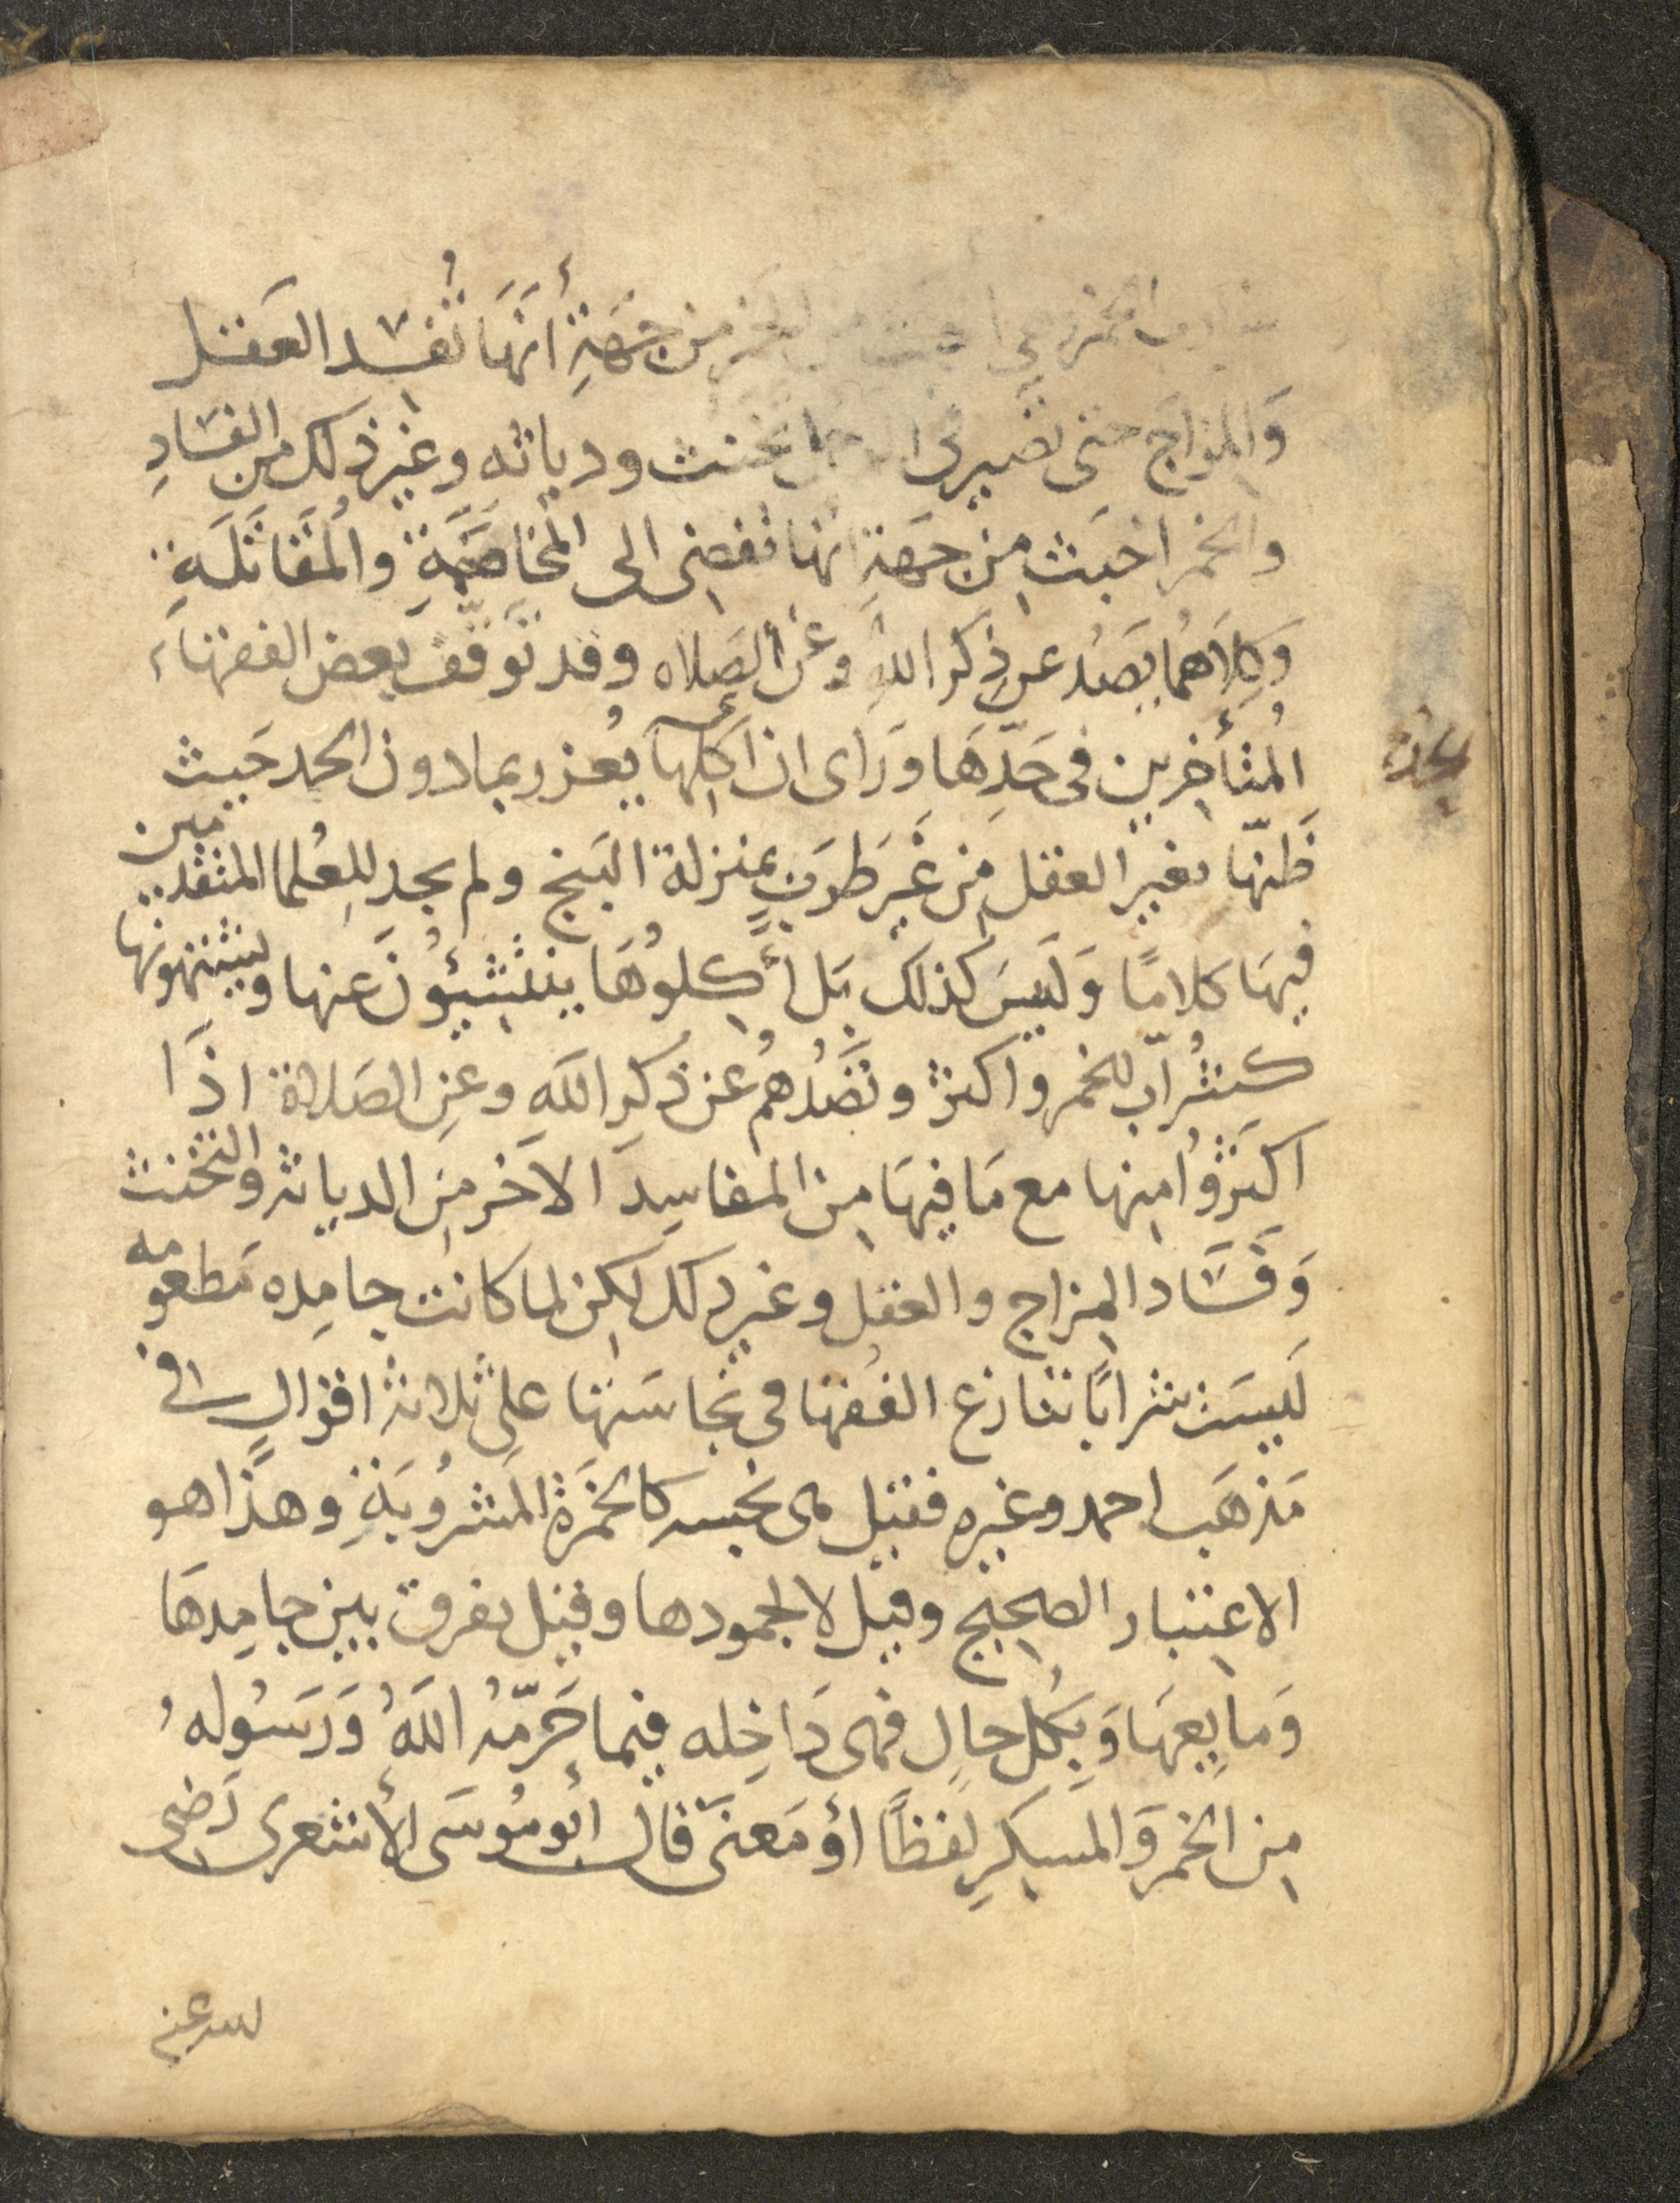 شارب الخمر وهي اخبث من الخمر من جهةِ أنهَا تُفسد العَقل
وَالمزاج حتى تصير في الرجل تخنث ودياثه وغير ذلك من الفسَادِ
والخمر اخبَث من جهَة انها تفضى الى المخاصَمَةِ والمُقَاتَلَةِ
وَكِلاَهُما يصَدُ عن ذِكر اللهِ وعن الصَلاه وقد توَقّفَ بعض الفقهاءَ
المُتأخِرين فى حَدِّهَا وَراى ان اكلِهَا يُعزر بما دون الحد حَيث
ظَنّها تغير العقل من غَير طرَبٍ بمنزلة البَنج ولم يجد للِعُلما المتقدمين
فيهَا كلامًا وَليسَ كذلك بَل أكِلوُهَا ينتشِيئوُنَ عنها ويشتهونها
كشُرّاب الخمر واكثر وتصُدُهمُ عن ذكرِ اللَهِ وعنِ الصَلاة اذَا
اكثَرُوُا منها مع مَا فيهَا مِن المفاسِدَ الاخر مِنَ الدياثه والتخنث
وَفَسَاد المِزاج والعقل وغير ذلك لكِن لما كانت جامِده مَطعومه
لَيسَت شرابًا تنازع الفُقها في نجاسَتها على ثلاثة اقوالٍ في
مَذهَب احمد وغيره فقيل هى نجسه كالخمَرة المَشرُوبَةِ وهذَا هو
الاعِتبار الصحِيح وقيل لا لجمودها وقيل يفرق بين جامِدهَا
وَمايعِهَا وَبِكُل حالٍ فهى دَاخِله فِيما حَرّمُه اللَهُ وَرَسُولهُ
مِن الخمَر وَالمسِكرِ لفظًا أؤ مَعنىً قال أبوُ موُسَى الأشعرى رَضى
الله عنه